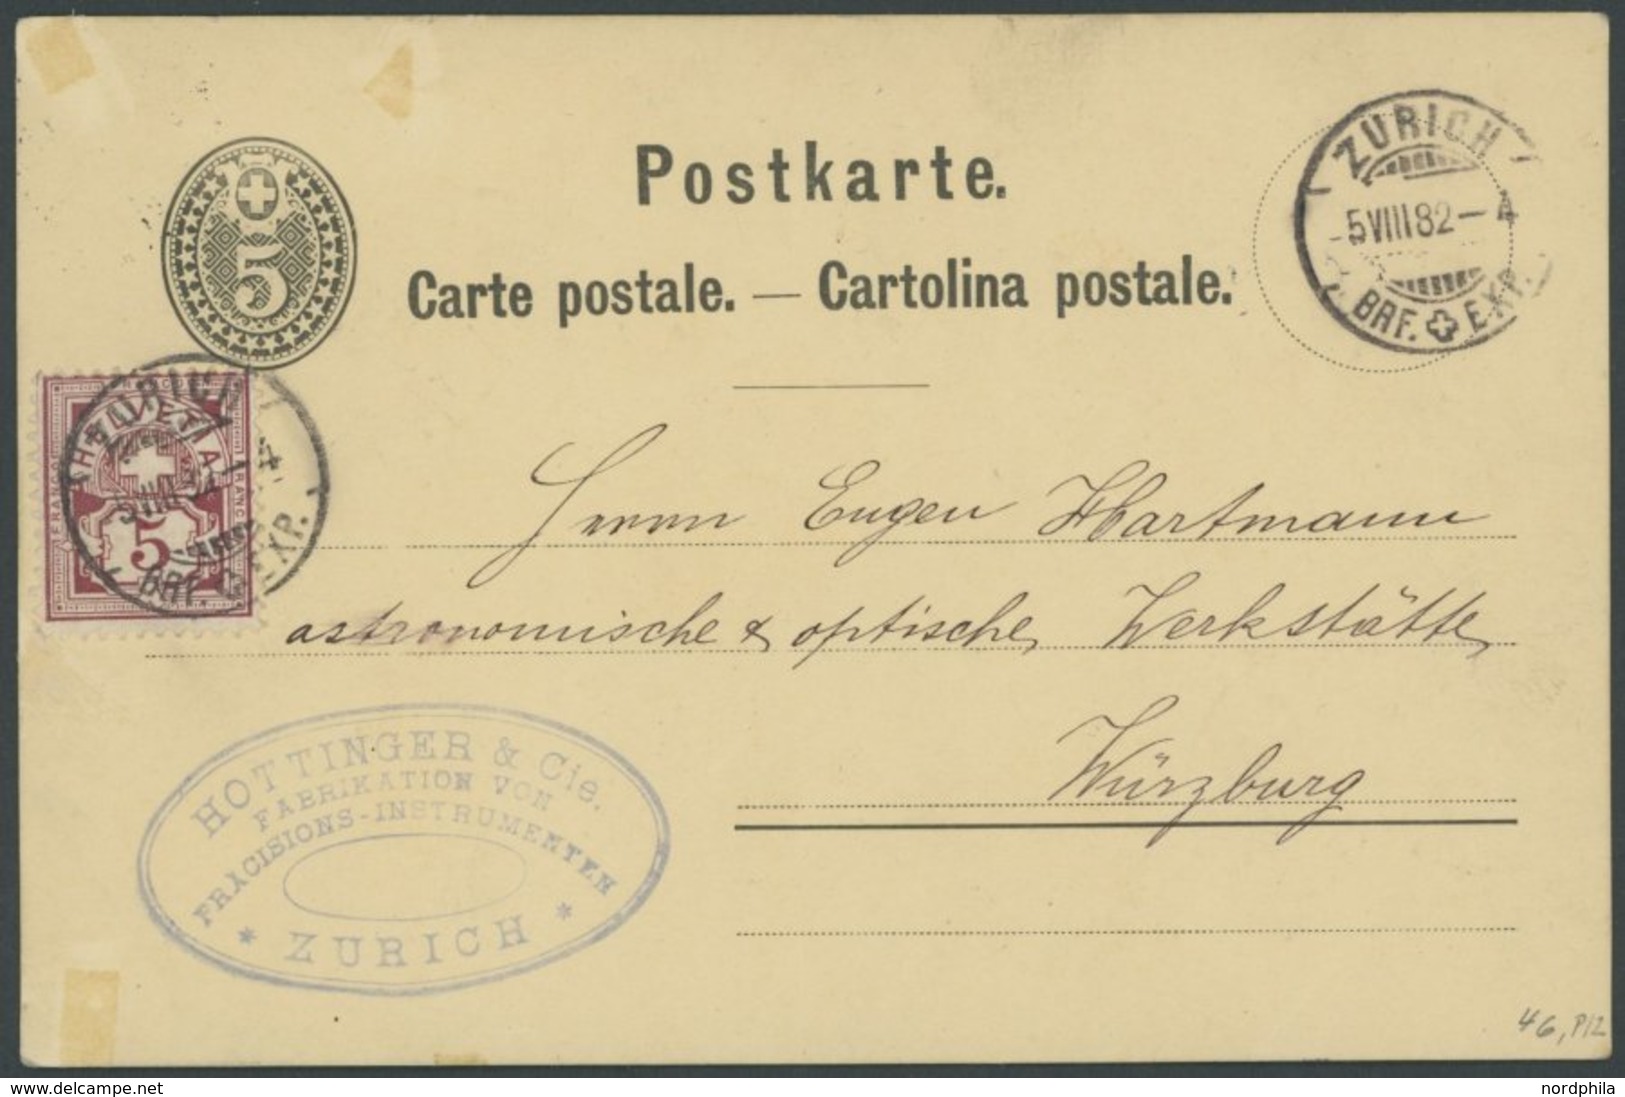 Postkarte.
Carte postale. — Cartolina postale.
5
ZURICH
5 VIII 82 – 4
BRF. EXP.
HELVETIA
FRANCO
5
ZURICH
5 VIII 82 – 4
BRF. EXP.
Herrn Eugen Hartmann
astronomische & optische Werkstätte
Würzburg
HOTTINGER & Cie.
FABRIKATION VON
PRÄCISIONS-INSTRUMENTEN
* ZURICH *
46, P12
www.delcampe.net
nordphila